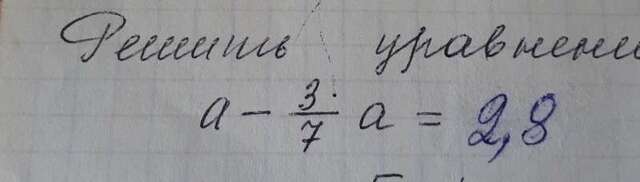 Решить уравнени
a - 3/7 a = 2,8